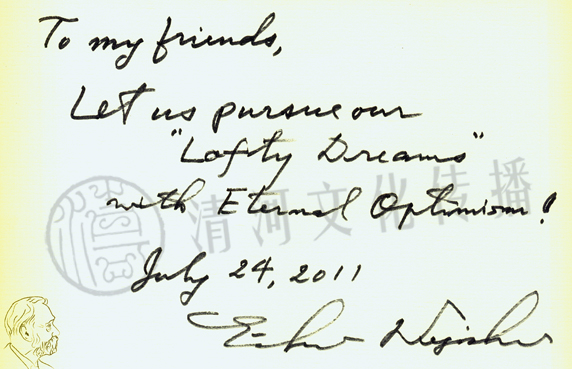 To my friends,
Let us pursue our
"Lofty Dreams"
with Eternal Optimism!
清河文化传播
July 24, 2011
Ei-ichi Negishi